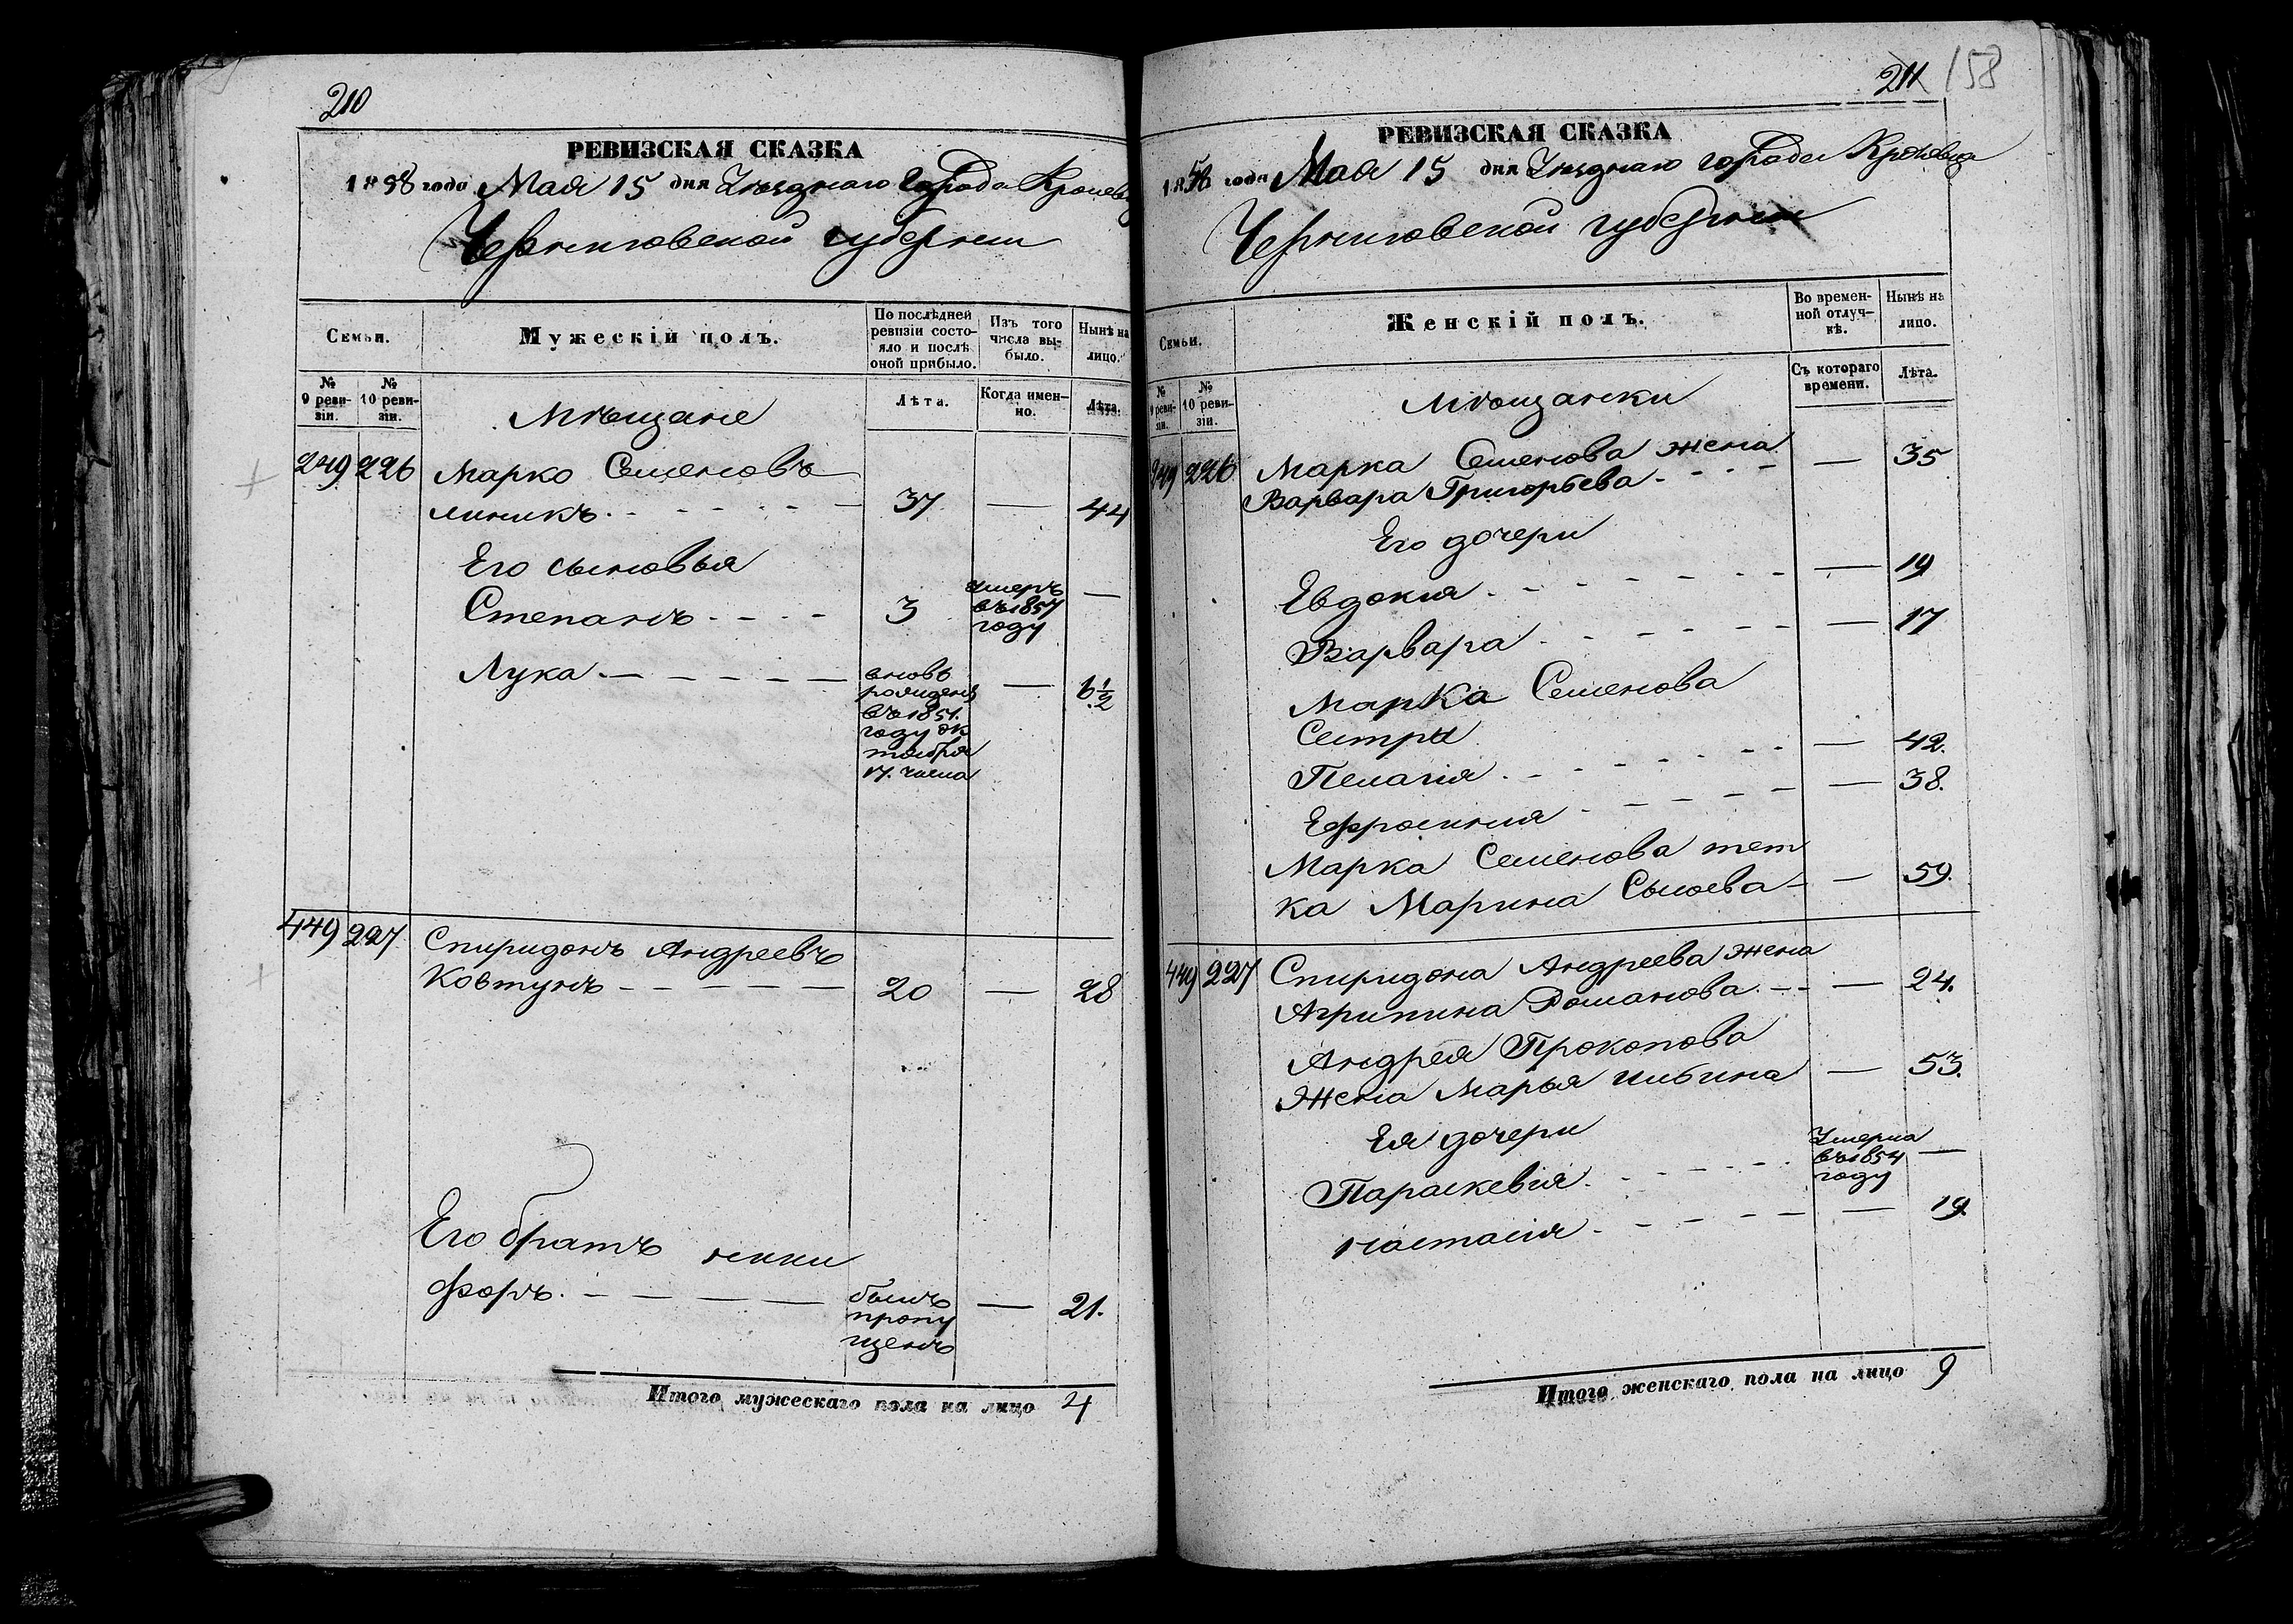 210
РЕВИЗСКАЯ СКАЗКА
1858 года Мая 15 дня Уѣзднаго города Кролев
Черниговской губернии
Семьи.
Мужескій полъ.
По послѣдней ревизіи состояло и послѣ оной прибыло.
Изъ того числа выбыло.
Нынѣ на лицо.
№ 9 ревизіи.
№ 10 ревизіи.
Лѣта.
Когда именно.
Лѣта.
Мѣщане
249 226 Марко Семеновъ
линикъ 37 — 44
Его сыновья
Степанъ 3 умеръ въ 1857 году —
Лука вновь рожденъ въ 1851. году октября 17. числа — 6 1/2
449 227 Спиридонъ Андреевъ
Ковтунъ 20 — 28
Его братъ ники
форъ. былъ пропущенъ — 21.
Итого мужескаго пола на лицо 4
211 158
РЕВИЗСКАЯ СКАЗКА
1858 года Мая 15 дня Уѣзднаго города Кролевца
Черниговской губернии
Семьи.
Женскій полъ.
Во временной отлучкѣ.
Нынѣ на лицо.
№ 9 ревизіи.
№ 10 ревизіи.
Съ котораго времени.
Лѣта.
Мѣщанки
249 226 Марка Семенова жена
Варвара Григорьева — 35
Его дочери
Евдокия — 19
Варвара — 17
Марка Семенова
Сестры
Пелагия — 42.
Ефросиния — 38.
Марка Семенова тет
ка Марина Сысоева — 59.
449 227 Спиридона Андреева жена
Агрипина Романова — 24.
Андрея Прокопова
Жена Марья Ильина — 53.
Ея дочери
Параскевия умерла въ 1854 году —
Настасия — 19.
Итого женскаго пола на лицо 9